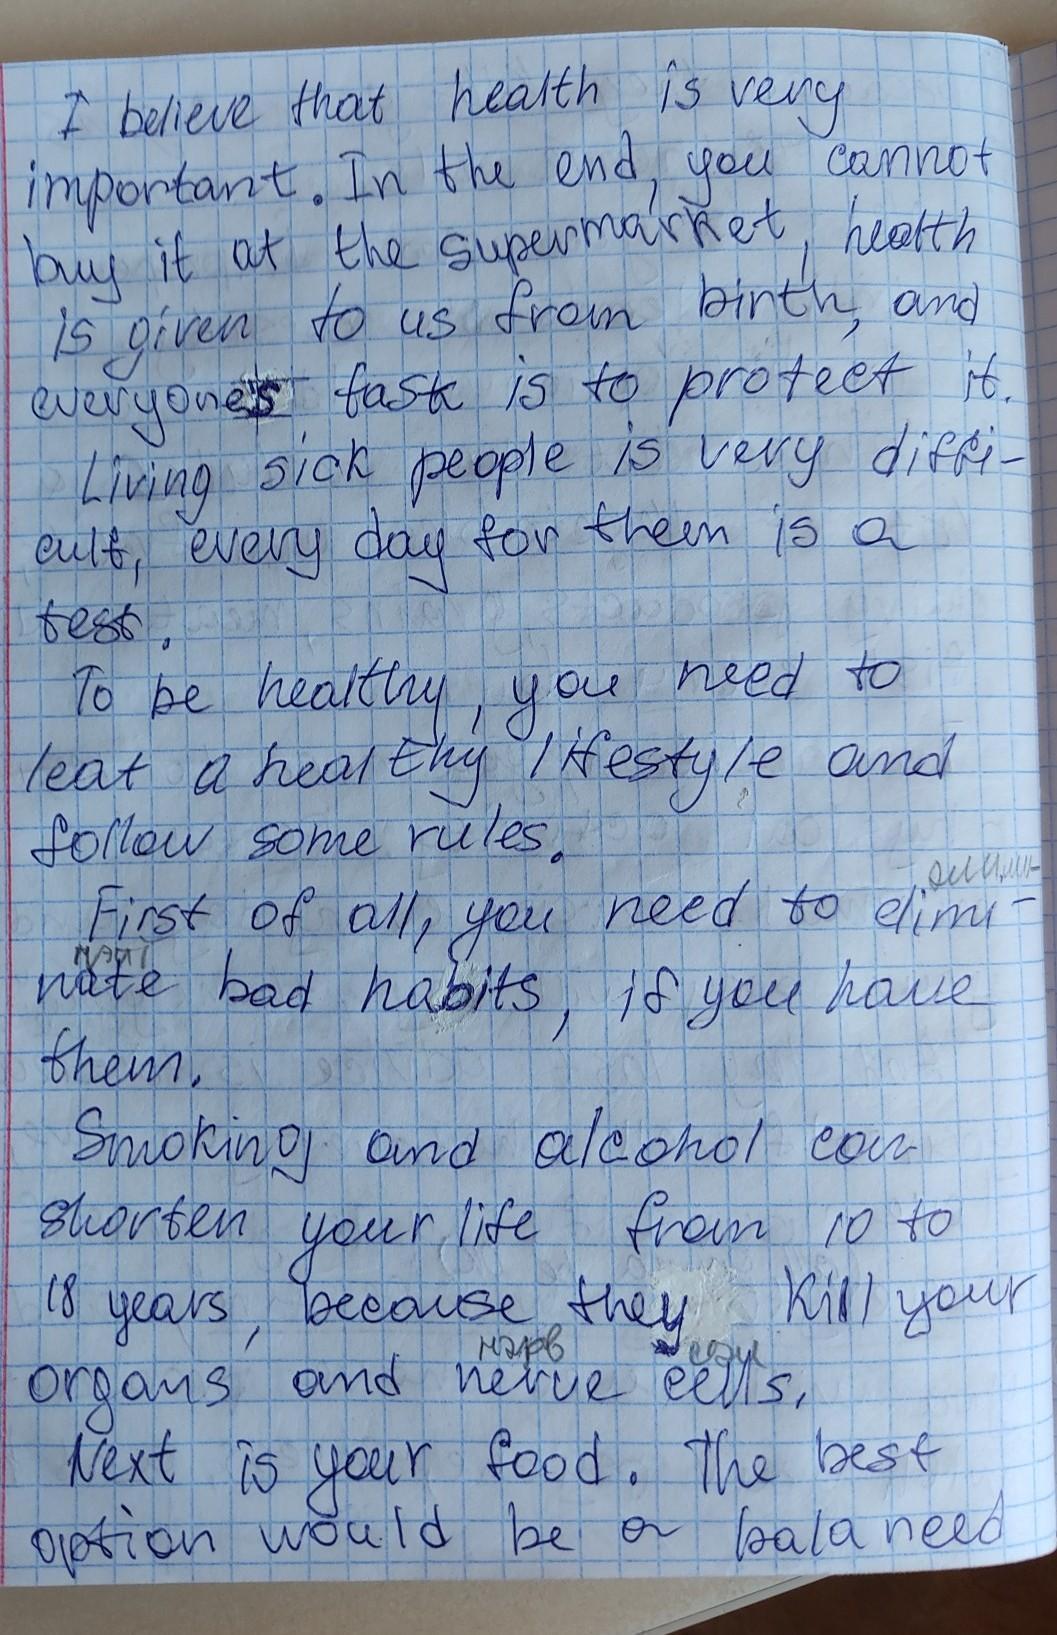 I believe that health is very
important. In the end, you cannot
buy it at the supermarket, health
is given to us from birth, and
everyone's task is to protect it.
Living sick people is very diffi-
cult, every day for them is a
test.
To be healthy, you need to
leat a healthy lifestyle and
follow some rules.
элими-
First of all, you need to elimi-
нэйт
nate bad habits, if you have
them.
Smoking and alcohol can
shorten your life from 10 to
18 years, because they kill your
нэрв сэлс
organs and nerve cells.
Next is your food. The best
option would be a balanced